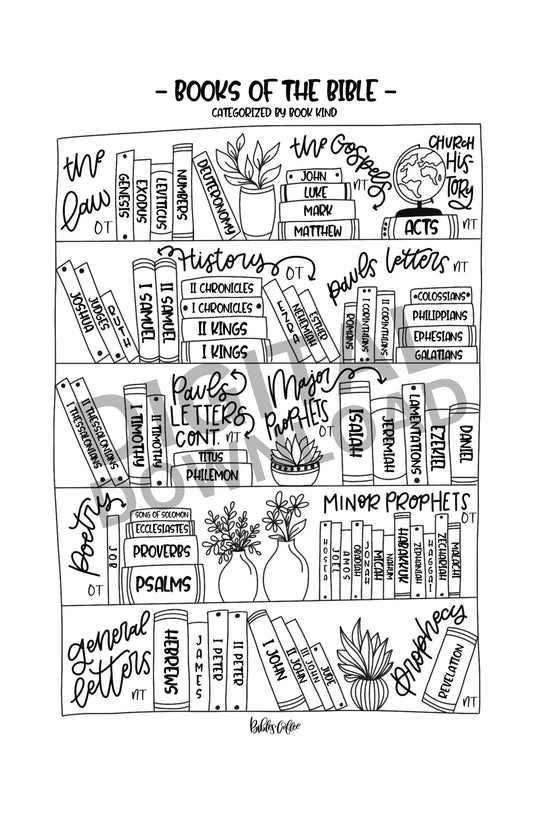 - BOOKS OF THE BIBLE -
CATEGORIZED BY BOOK KIND
the law
OT
GENESIS
EXODUS
LEVITICUS
NUMBERS
DEUTERONOMY
the Gospels
NT
JOHN
LUKE
MARK
MATTHEW
CHURCH
HIS-
TORY
NT
ACTS
History
OT
JOSHUA
JUDGES
RUTH
I SAMUEL
II SAMUEL
II CHRONICLES
I CHRONICLES
II KINGS
I KINGS
EZRA
NEHEMIAH
ESTHER
pauls letters
NT
ROMANS
I CORINTHIANS
II CORINTHIANS
COLOSSIANS
PHILIPPIANS
EPHESIANS
GALATIANS
DIGITAL
DOWNLOAD
I THESSALONIANS
II THESSALONIANS
I TIMOTHY
II TIMOTHY
Pauls
LETTERS
CONT.
NT
TITUS
PHILEMON
Major
Prophets
OT
ISAIAH
JEREMIAH
LAMENTATIONS
EZEKIEL
DANIEL
poetry
OT
JOB
SONG OF SOLOMON
ECCLESIASTES
PROVERBS
PSALMS
MINOR PROPHETS
OT
HOSEA
JOEL
AMOS
OBADIAH
JONAH
MICAH
NAHUM
HABAKKUK
ZEPHANIAH
HAGGAI
ZECHARIAH
MALACHI
general
letters
NT
HEBREWS
JAMES
I PETER
II PETER
I JOHN
II JOHN
III JOHN
JUDE
prophecy
REVELATION
NT
Bibles & Coffee